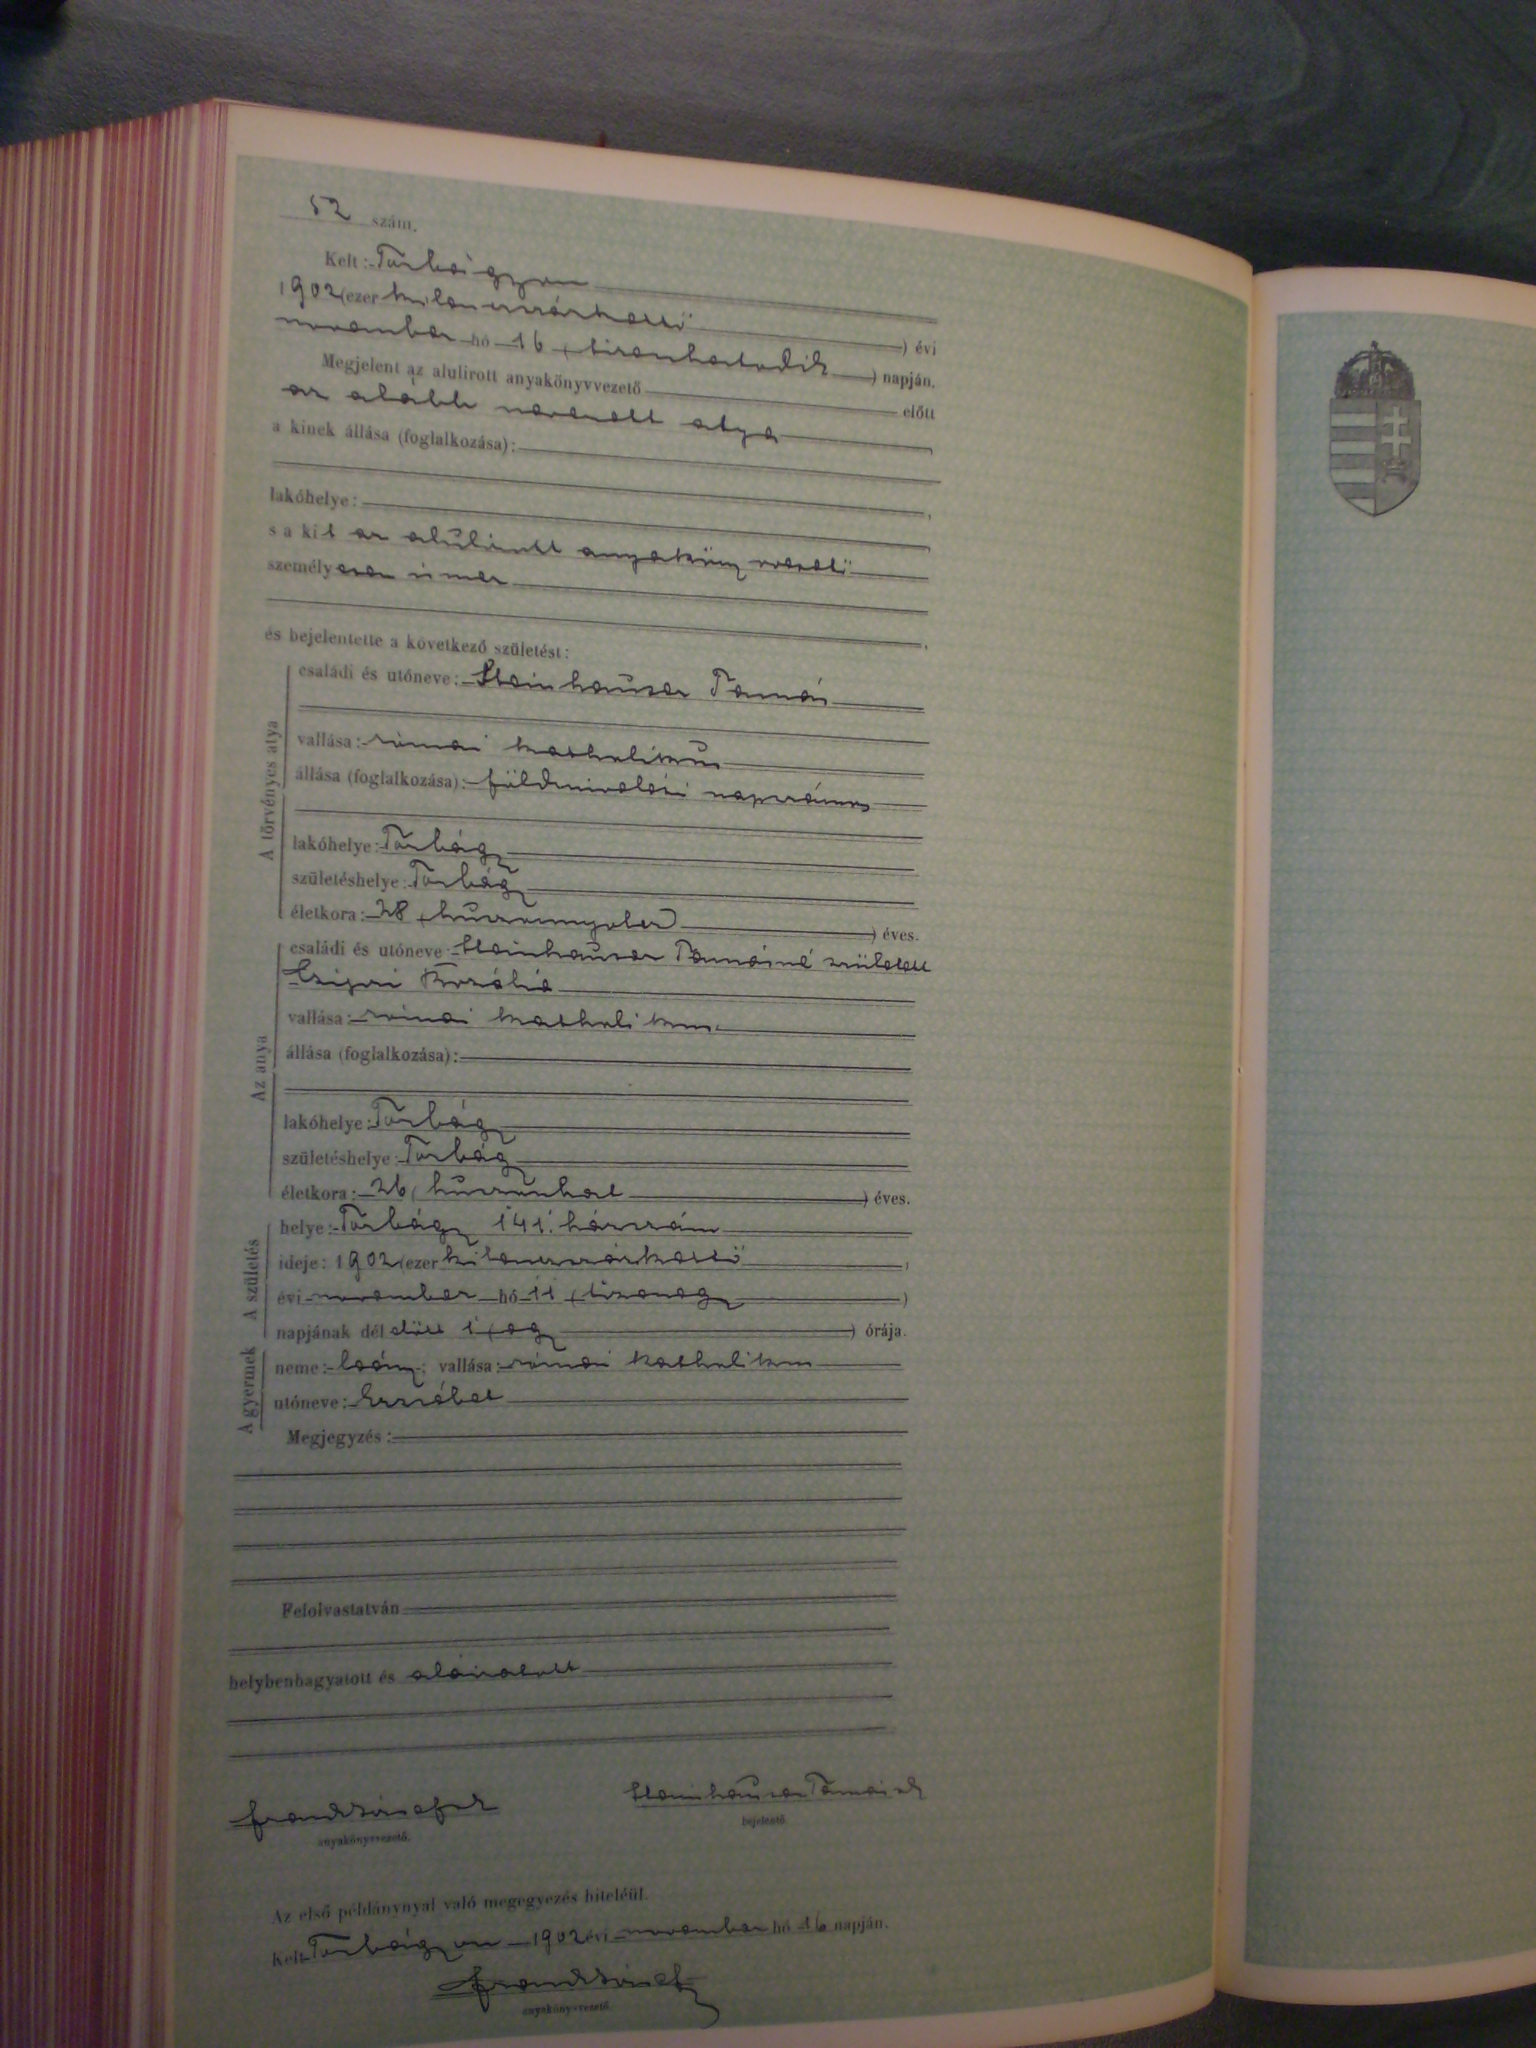 52 szám.
Kelt: Torbágyon
1902 (ezer kilenczszázkettő
) évi
november hó 16 (tizenhatodik) napján.
Megjelent az alulirott anyakönyvvezető előtt
az alább nevezett atya
a kinek állása (foglalkozása):
lakóhelye: ,
s a kit az alulirott anyakönyvvezető
személyesen ismer
,
és bejelentette a következő születést:
A törvényes atya
családi és utóneve: Steinhauser Tamás
vallása: római katholikus
állása (foglalkozása): földmivelési napszámos
lakóhelye: Torbágy
születéshelye: Torbágy
életkora: 28 (huszonnyolcz) éves.
Az anya
családi és utóneve: Steinhauser Tamásné született
Czigri Rozália
vallása: római katholikus
állása (foglalkozása):
lakóhelye: Torbágy
születéshelye: Torbágy
életkora: 26 (huszonhat) éves.
A születés
helye: Torbágy 141. házszám
ideje: 1902 (ezer kilenczszázkettő ,
évi november hó 11 (tizenegy )
napjának délelőtt 1 (egy ) órája.
A gyermek
neme: leány; vallása: római katholikus
utóneve: Erzsébet
Megjegyzés:
Felolvastatván
helybenhagyatott és aláiratott
anyakönyvvezető.
Steinhauser Tamás
bejelentő.
Az első példánynyal való megegyezés hiteléül.
Kelt Torbágyon 1902 évi november hó 16 napján.
anyakönyvvezető.